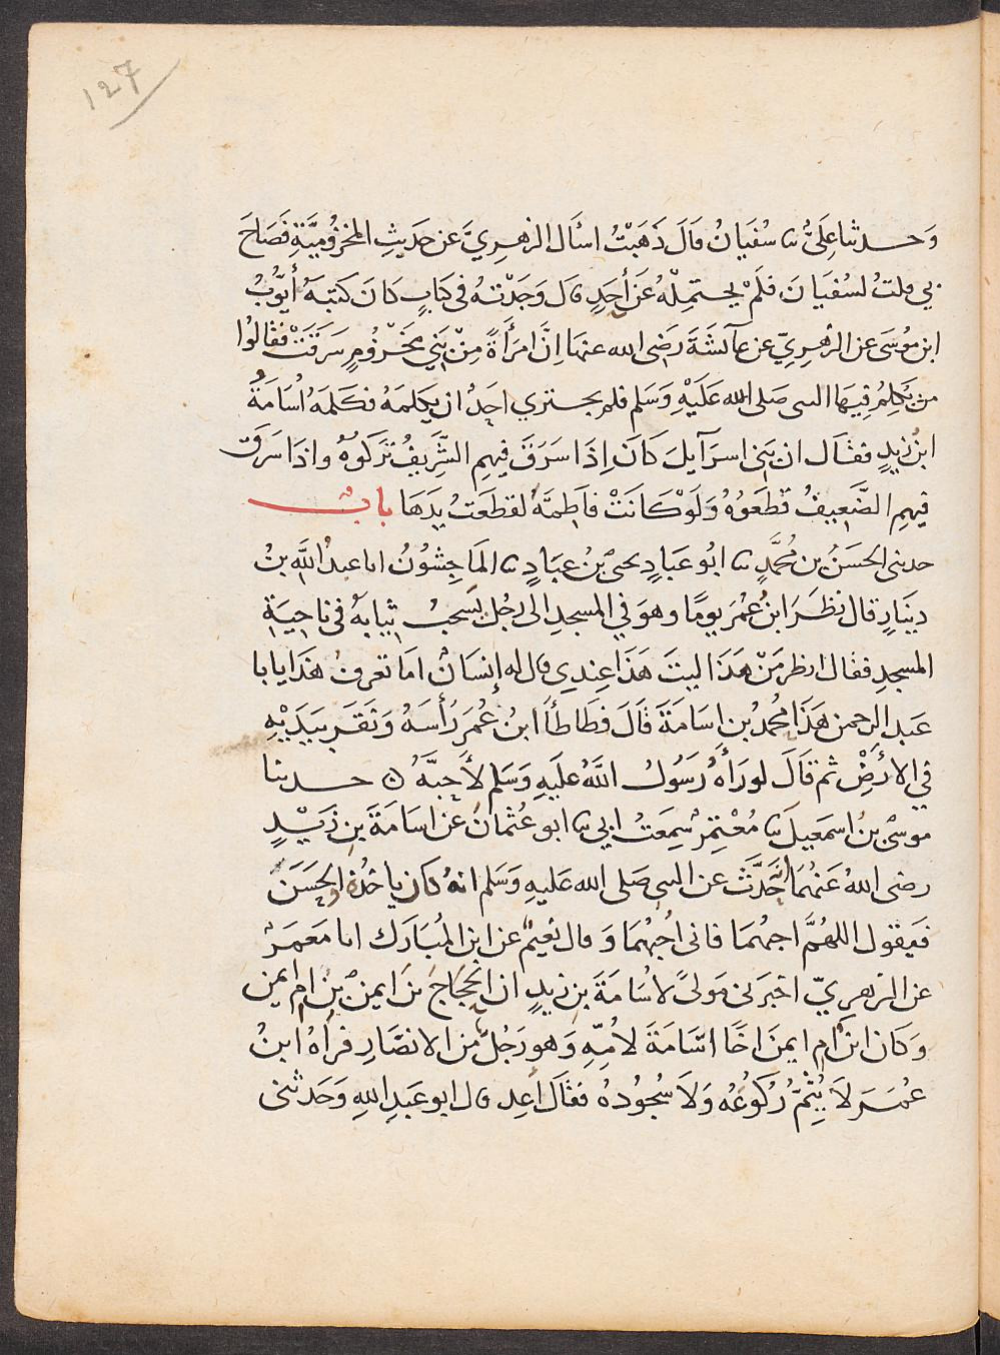 127
وَحدثنا عِلَىٌّ ثنا سُفيَانُ قالَ ذَهَبْتُ اسئَال الزهِريَّ عن حَدِيثِ المخزُوميَّةِ فَصَاحَ
بي قلتُ لسُفيَانَ فلَمْ يحتمِلْهُ عَن أَحَدٍ قال وَجَدْتهُ فى كتابٍ كانَ كتبَهُ أيُّوبُ
ابن مُوسَى عن الزهرِيِّ عن عآئشَةَ رضى الله عنها انَّ امرَأَةً مِنْ بَنِي مَخْزُومٍ سَرَقَتْ فقالُوا
من يُكلِمُ فِيهَا النبى صَلى الله عَلَيْهِ وَسَلم فلم يجتري احَدٌ ان يكلمَهُ فكَلمَهُ اُسَامَةُ
ابنُ زيدٍ فقال ان بَنِى اسرَآيلَ كَانَ اِذَا سَرَقَ فيهِم الشَّرِيفُ تَرَكُوهُ واذا سَرَق
فيهِم الضَّعِيفُ قطَعوُهُ وَلَوْ كَانَتْ فاَطِمَةُ لقطَعَتُ يَدَهَا بابٌ
حدثنى الحَسَنُ بن مُحمَّدٍ ثنا ابُو عَبَادٍ يحيى بنُ عبَادٍ ثنا المَاجِشُوُنُ انا عبدُ اللَّهِ بنُ
دِينَارٍ قال نظَرَ ابنُ عُمَرَ يومًا وهوَ فى المسجدِ الى رجُلٍ يَسحبُ ثيَابَهُ فى ناحيَةِ
المسجدِ فقال انظر مَنْ هَذَا ليتَ هَذَا عِندِى قال له إنسَانٌ امَا تعرفُ هَذَا يا با
عَبد الرحمن هَذَا محُمدُ بن اسَامَةَ قَالَ فطَاطأَ ابنُ عُمَرَ رَأسَهُ وَنَقَرَ بيَدَيْهِ
في الاَرْضِ ثم قَالَ لو رَأهُ رَسُولُ اللَّهُ عَليَهِ وَسَلم لأَحبَّهُ ۞ حدثنا
موسَى بنُ اسمَعِيلَ ثنا مُعْتَمِرٌ سَمِعَتُ ابي ثنا ابو عُثمانَ عن اسَامَةَ بنِ زَيْدٍ
رضى اللهُ عَنهُمَا حَدَّثَ عن النبى صَلى الله عَليهِ وَسَلم انهُ كان ياخُذهُ والحسَنَ
فيَقول اللهُمَّ احبهُمَا فانى اُحِبُهُمَا وَقال نُعَيمٌ عن ابن المُبَارَك انا مَعمَرٌ
عن الزهرِيّ اخبَرَنى مَولىً لاسَامَةَ بن زيدٍ ان الحَجَّاجَ بنَ ايمن بن ام ايمن
وَكان ابن ام ايمنَ اخًا اسَّامَةَ لاُمِّهِ وَهو رَجُلٌ من الانصَارِ فرَاهُ ابنُ
عُمَرَ لاَ يُتِمُّ رُكوُعُه وَلاَ سُجُودُهُ فقالَ اَعِد قال ابو عَبدِ اللهِ وَحَدثنى